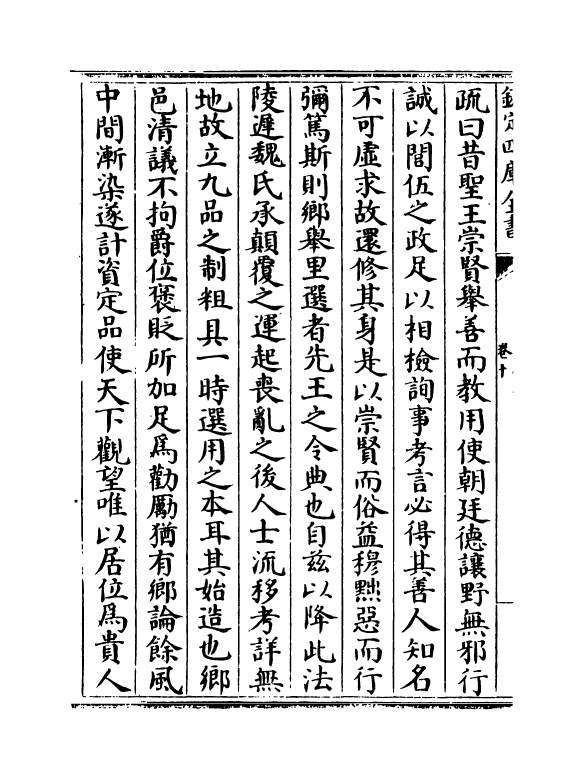 欽定四庫全書
卷十
疏曰昔聖王崇賢舉善而教用使朝廷德讓野無邪行
誠以閭伍之政足以相檢詢事考言必得其善人知名
不可虛求故還修其身是以崇賢而俗益穆黜惡而行
彌篤斯則鄉舉里選者先王之令典也自兹以降此法
陵遲魏氏承顛覆之運起喪亂之後人士流移考詳無
地故立九品之制粗具一時選用之本耳其始造也鄉
邑清議不拘爵位褒貶所加足爲勸勵猶有鄉論餘風
中間漸染遂計資定品使天下觀望唯以居位爲貴人